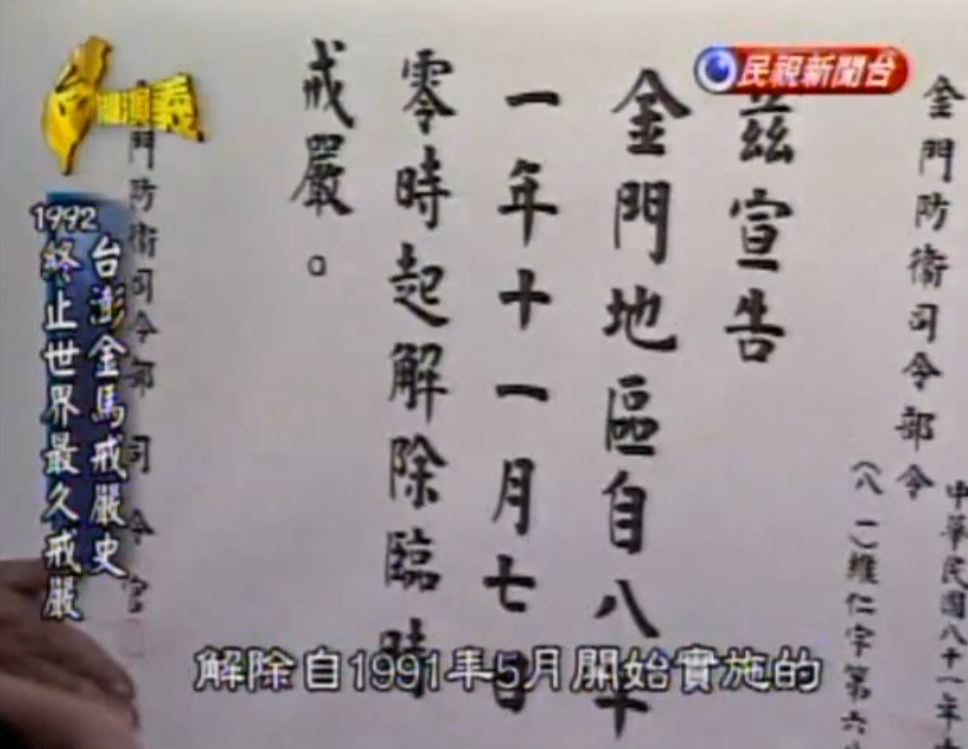 民視新聞台
金門防衛司令部令
中華民國八十一年
(八一)維仁字第六
茲宣告
金門地區自八十
一年十一月七日
零時起解除臨時
戒嚴。
門防衛司令部 司令官
演義
1992
台澎金馬戒嚴史
終止世界最久戒嚴
解除自1991年5月開始實施的